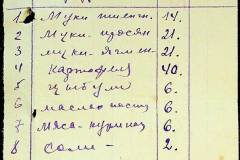 1. Муки пшенич. 14.
2 Муки-просян 21.
3 муки-ячмен. 21.
4 Картофеля 40.
5 Цыбули 6.
6 масла постн 6.
7 Мяса-куриное 6.
8 Соли- 2.